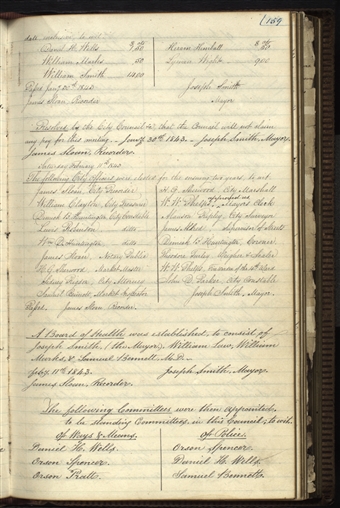 169
Daniel H. Wells
William Marks 50
William Smith
Hiram Kimball
Lyman Wight
Passed Jany. 30th 1843.
Joseph Smith
Mayor
James Sloan Recorder
Resolved by the City Council &c that the Council will not claim
any pay for this meeting. Jany. 30th 1843. Joseph Smith, Mayor.
James Sloan, Recorder.
Saturday February 11th 1843
The following City officers were elected for the ensuing two years to wit
James Sloan, City Recorder
William Clayton, City Treasurer
Dimick B. Huntington, City Constable
ditto
Wm. D. Huntington ditto
James Sloan, Notary Public
H. G. Sherwood Market Master
Sidney Rigdon, City Attorney
H. G. Sherwood City Marshall
W. W. Phelps appointed as Mayors Clerk
City Surveyor
James Allred Supervisor of Streets
Dimick B. Huntington, Coroner
Theodore Turley, Weigher & Sealer
John D. Parker, City Constable
Joseph Smith, Mayor.
Passed. James Sloan Recorder.
A Board of Health was established, to consist of
Joseph Smith, (the Mayor), William Law, William
Marks, & Samuel Bennett M.D.
Feby. 11th 1843. Joseph Smith, Mayor.
James Sloan, Recorder.
The following Committees were then appointed,
to be standing Committees, in this Council, to wit.
Of Ways & Means,
Daniel H. Wells
Orson Spencer
Orson Pratt
Of Police.
Orson Spencer
Daniel H. Wells
Samuel Bennett